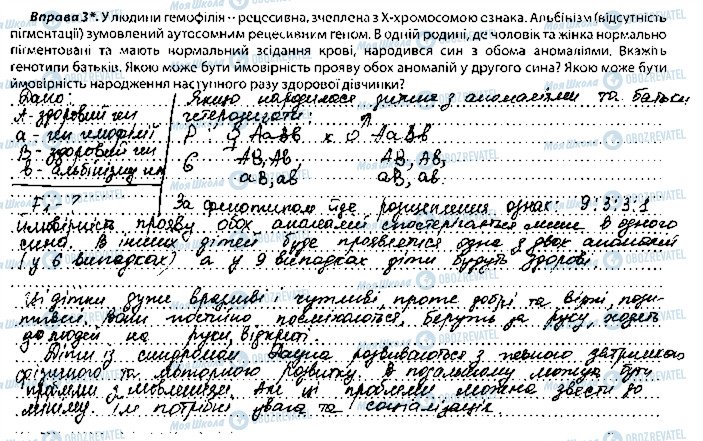 Вправа 3*. У людини гемофілія — рецесивна, зчеплена з Х-хромосомою ознака. Альбінізм (відсутність
пігментації) зумовлений аутосомним рецесивним геном. В одній родині, де чоловік та жінка нормально
пігментовані та мають нормальний зсідання крові, народився син з обома аномаліями. Вкажіть
генотипи батьків. Якою може бути ймовірність прояву обох аномалій у другого сина? Якою може бути
ймовірність народження наступного разу здорової дівчинки?
Дано: Якщо народилася дитина з аномаліями та батьки
А - здоровий ген гетерозиготи:
а - ген гемофілії Р ♀ АаВв х ♂ АаВв
В - здоровий ген G АВ, Ав, АВ, Ав,
в - альбінізму ген аВ, ав аВ, ав.
F₁ - ? За фенотипом йде розщеплення ознак: 9:3:3:1
ймовірність прояву обох аномалій спостерігається лише в одного
сина. В інших дітей буде проявлятися одна з двох аномалій
(у 6 випадках) а у 9 випадках діти будуть здорові.
Ці дітки дуже вразливі і чутливі, проте добрі та вірні,
Вони постійно посміхаються, беруть за руку, ходять
до людей на руки, відкриті.
Діти із синдромом Дауна розвиваються з певною затримкою
фізичного та моторного розвитку. В подальшому можуть бути
проблеми з мовленням. Але ці проблеми можна звести до
мінімуму, їм потрібні увага та соціалізація.
Моя Школа OBOZREVATEL